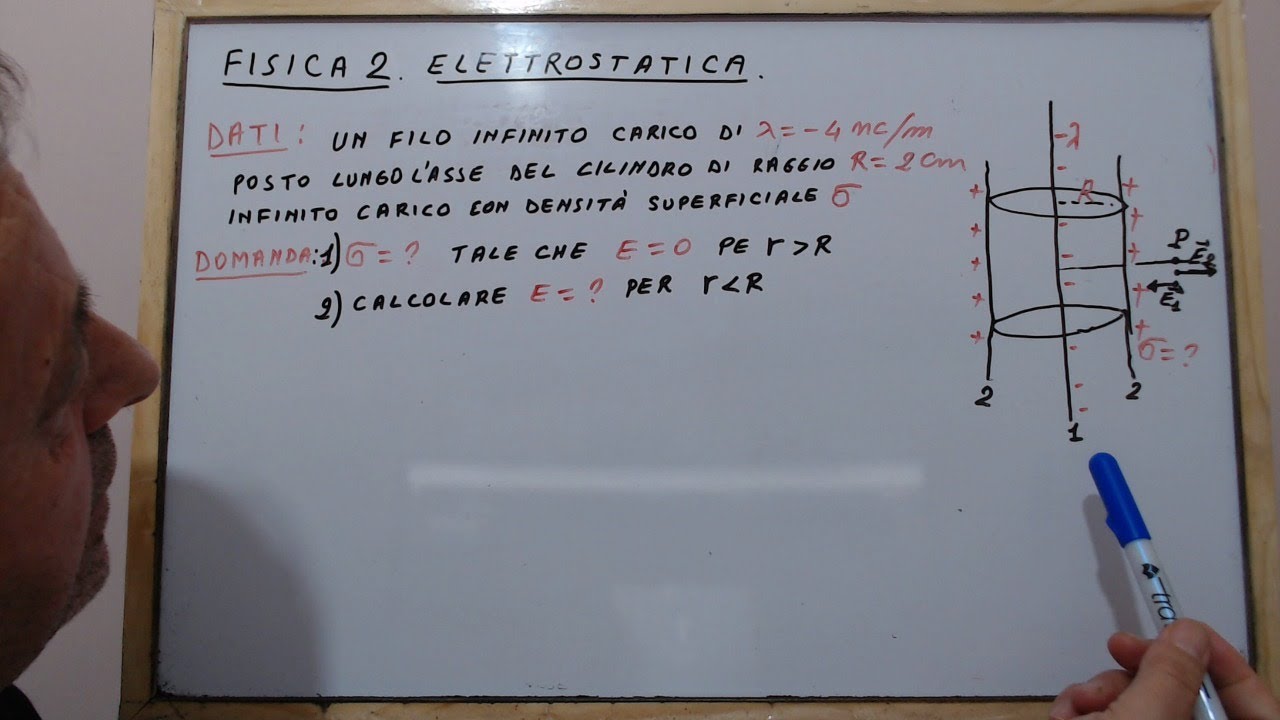 FISICA 2. ELETTROSTATICA.
DATI: UN FILO INFINITO CARICO DI λ=-4 nc/m
POSTO LUNGO L'ASSE DEL CILINDRO DI RAGGIO R=2cm
INFINITO CARICO CON DENSITÀ SUPERFICIALE σ
DOMANDA: 1) σ=? TALE CHE E=0 PE r>R
2) CALCOLARE E=? PER r<R
-λ
R
P
E₁
σ=?
2
2
1